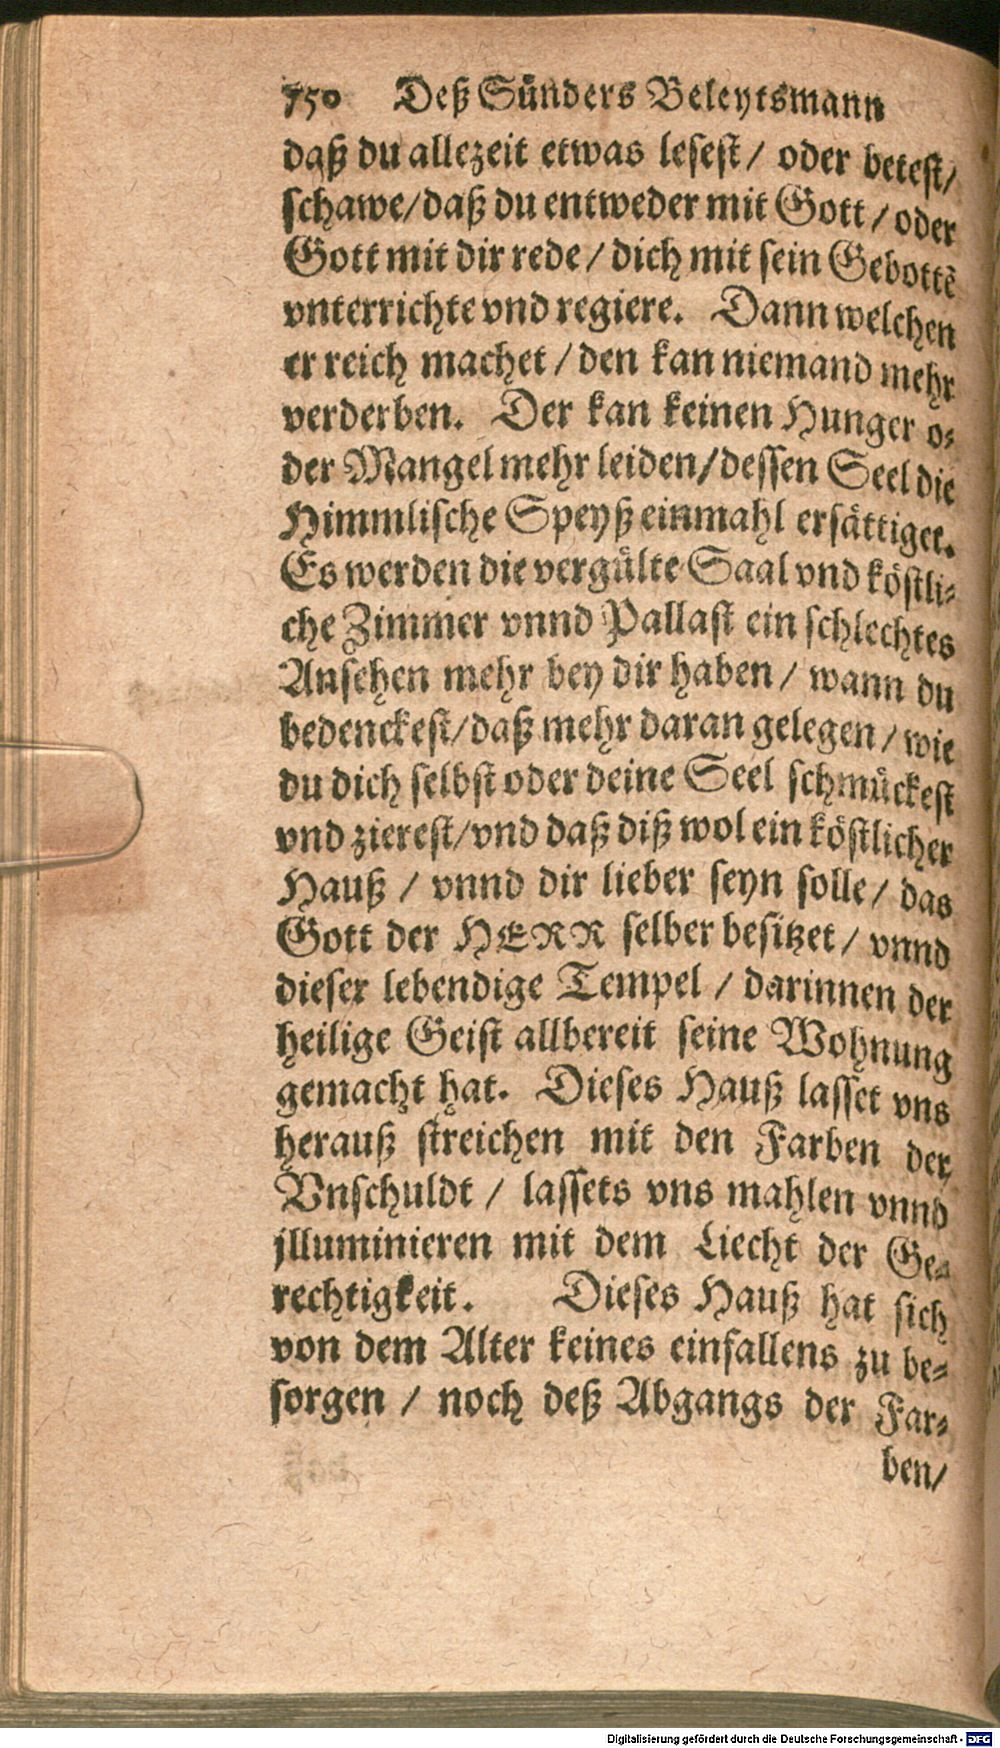 750 Deß Sünders Beleytsmann
daß du allezeit etwas lesest/ oder betest/
schawe/daß du entweder mit Gott/oder
Gott mit dir rede/dich mit sein Gebottẽ
vnterrichte vnd regiere. Dann welchen
er reich machet/den kan niemand mehr
verderben. Der kan keinen Hunger o-
der Mangel mehr leiden/dessen Seel die
Himmlische Speyß einmahl ersättiget.
Es werden die vergülte Saal vnd köstli-
che Zimmer vnnd Pallast ein schlechtes
Ansehen mehr bey dir haben/ wann du
bedenckest/daß mehr daran gelegen/wie
du dich selbst oder deine Seel schmückest
vnd zierest/vnd daß diß wol ein köstlicher
Hauß / vnnd dir lieber seyn solle/ das
Gott der HERR selber besitzet/ vnnd
dieser lebendige Tempel / darinnen der
heilige Geist allbereit seine Wohnung
gemacht hat. Dieses Hauß lasset vns
herauß streichen mit den Farben der
Vnschuldt / lassets vns mahlen vnnd
jlluminieren mit dem Liecht der Ge-
rechtigkeit. Dieses Hauß hat sich
von dem Alter keines einfallens zu be-
sorgen / noch deß Abgangs der Far-
ben/
Digitalisierung gefördert durch die Deutsche Forschungsgemeinschaft - DFG